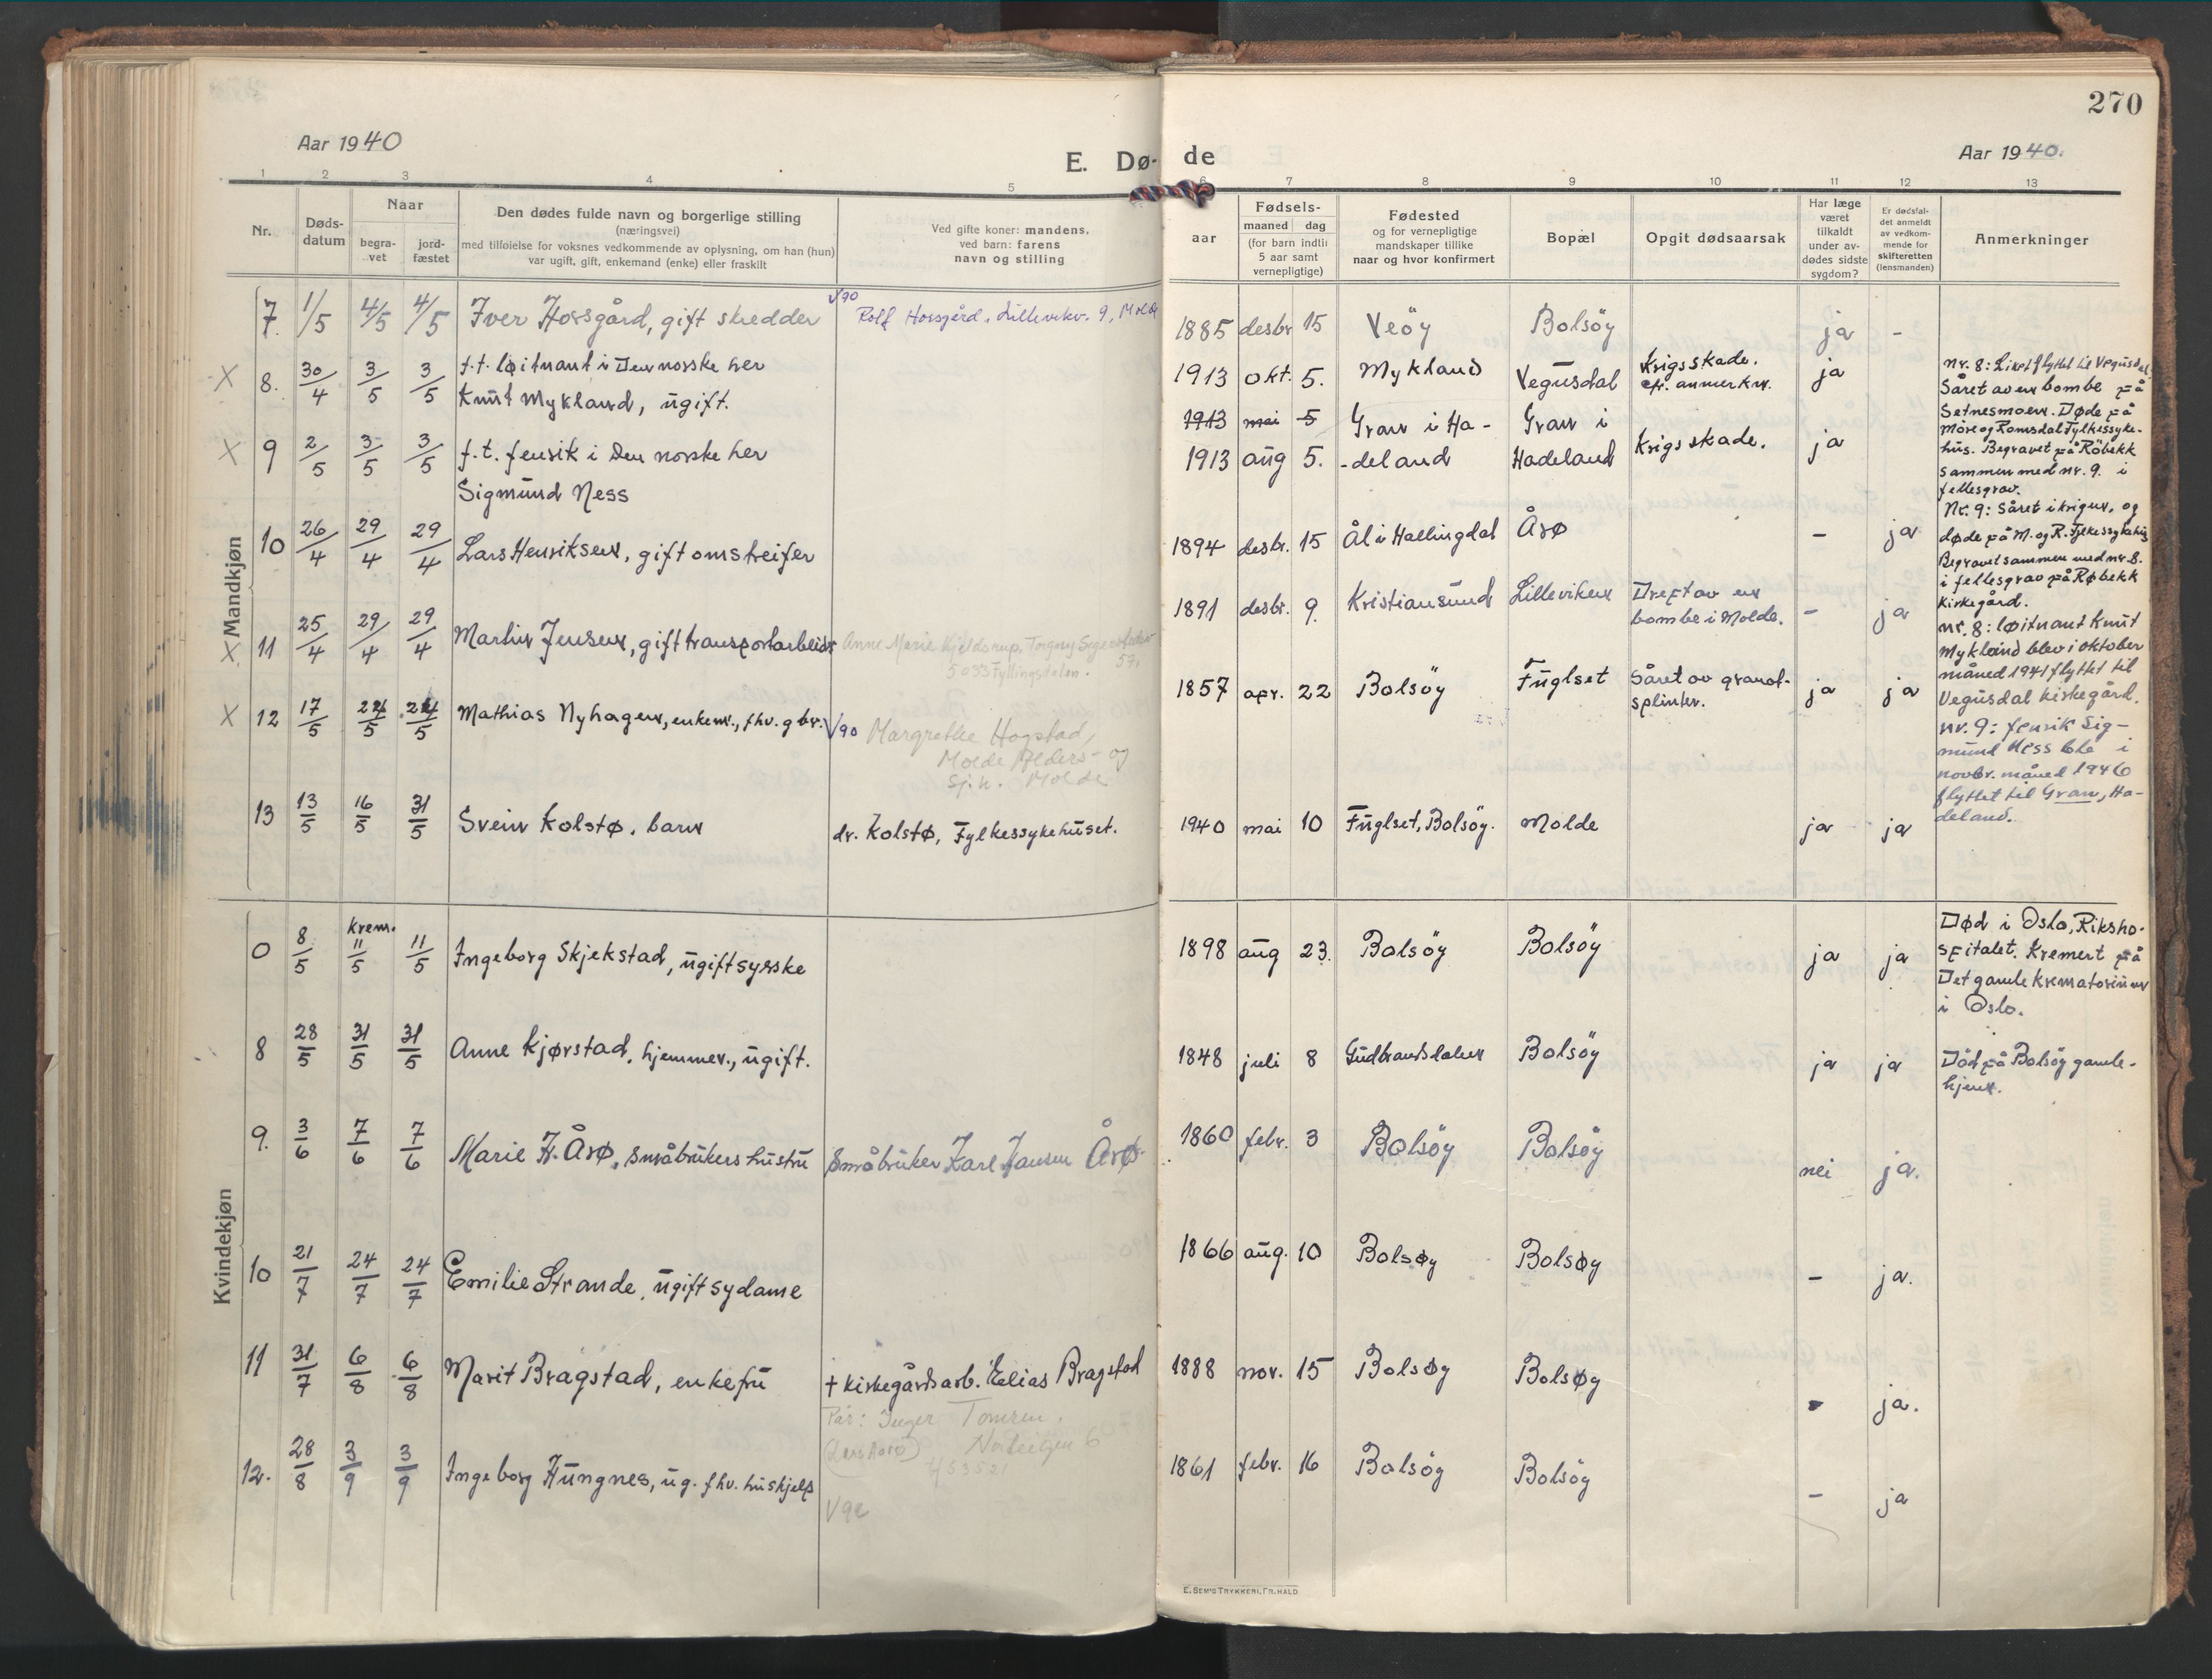 270
Aar 1940
E. Dø- de
Aar 1940.
1 2 3 4 5 6 7 8 9 10 11 12 13
Nr.
Døds-
datum
Naar
begra-
vet
jord-
fæstet
Den dødes fulde navn og borgerlige stilling
(næringsvei)
med tilføielse for voksnes vedkommende av oplysning, om han (hun)
var ugift, gift, enkemand (enke) eller fraskilt
Ved gifte koner: mandens,
ved barn: farens
navn og stilling
Fødsels-
aar
maaned dag
(for barn indtil
5 aar samt
vernepligtige)
Fødested
og for vernepligtige
mandskaper tillike
naar og hvor konfirmert
Bopæl
Opgit dødsaarsak
Har læge
været
tilkaldt
under av-
dødes sidste
sygdom?
Er dødsfal-
det anmeldt
av vedkom-
mende for
skifteretten
(lensmanden)
Anmerkninger
Mandkjøn
7. 1/5 4/5 4/5 Iver Horsgård, gift skredder V90 Rolf Horsgård, Lillevikv. 9, Molde 1885 desbr 15 Veöy Bolsöy ja -
X 8. 30/4 3/5 3/5 f.t. løitnant i Den norske her
Knut Mykland, ugift. 1913 okt. 5. Mykland Vegusdal Krigsskade.
cfr. anmerkn. ja
1913 mai 5
X 9 2/5 3/5 3/5 f.t. fenrik i Den norske her
Sigmund Ness 1913 aug 5. Gran i Ha-
-deland Gran i
Hadeland Krigsskade. ja
10 26/4 29/4 29/4 Lars Henriksen, gift omstreifer 1894 desbr. 15 Ål i Hallingdal Årø - ja
X 11 25/4 29/4 29/4 Martin Jensen, gift transportarbeider Anne Marie Kjeldsrup, Torgny Segerstedts
57,
5033 Fyllingsdalen. 1891 desbr. 9. Kristiansund Lilleviken Drept av en
bombe i Molde. - ja
X 12 17/5 24/5 24/5 Mathias Nyhagen, enkem., fhv. gbr. V90 Margrethe Hogstad,
Molde Alders- og
Sj.h. Molde 1857 apr. 22 Bolsöy Fuglset Såret av granat-
splinter. ja ja
13 13/5 16/5 31/5 Svein Kolstø, barn dr. Kolstø, Fylkessykehuset. 1940 mai 10 Fuglset, Bolsöy. Molde ja ja
nr. 8: Liket flyttet til Vegusdal
Såret av en bombe på
Setnesmoen. Døde på
Möre og Romsdal Fylkessyke-
hus. Begravet på Röbekk
sammen med nr. 9. i
fellesgrav.
Nr. 9: Såret i krigen, og
døde på M. og R. Fylkessykehus
Begravet sammen med nr. 8.
i fellesgrav på Røbekk
Kirkegård.
nr. 8: løitnant Knut
Mykland blev i oktober
måned 1941 flyttet til
Vegusdal kirkegård.
nr. 9: fenrik Sig-
mund Ness ble i
novbr. måned 1946
flyttet til Gran, Ha-
deland.
Kvindekjøn
0 8/5 krem. 11/5 11/5 Ingeborg Skjekstad, ugift syerske 1898 aug 23. Bolsöy Bolsöy ja ja
Død i Oslo, Riksho-
spitalet. Kremert på
Det gamle Krematorium
i Oslo.
8 28/5 31/5 31/5 Anne Kjørstad, hjemmev., ugift. 1848 juli 8 Gudbrandsdalen Bolsöy ja ja Död på Bolsöy gamle-
hjem.
9. 3/6 7/6 7/6 Marie H. Årø, småbrukers hustru Småbruker Karl Hansen Årø 1860 febr. 3 Bolsöy Bolsöy nei ja.
10 21/7 24/7 24/7 Emilie Strande, ugift sydame 1866 aug. 10 Bolsøy Bolsøy - ja.
11 31/7 6/8 6/8 Marit Bragstad, enkefru + kirkegårdsarb. Elias Bragstad
Pår: Inger Tomren, 1888 nov. 15 Bolsøy Bolsøy - ja.
12. 28/8 3/9 3/9 Ingeborg Hungnes, ug. fhv. hushjelp V90 1861 febr. 16 Bolsöy Bolsöy - ja
E. SEM'S TRYKKERI, FR.HALD